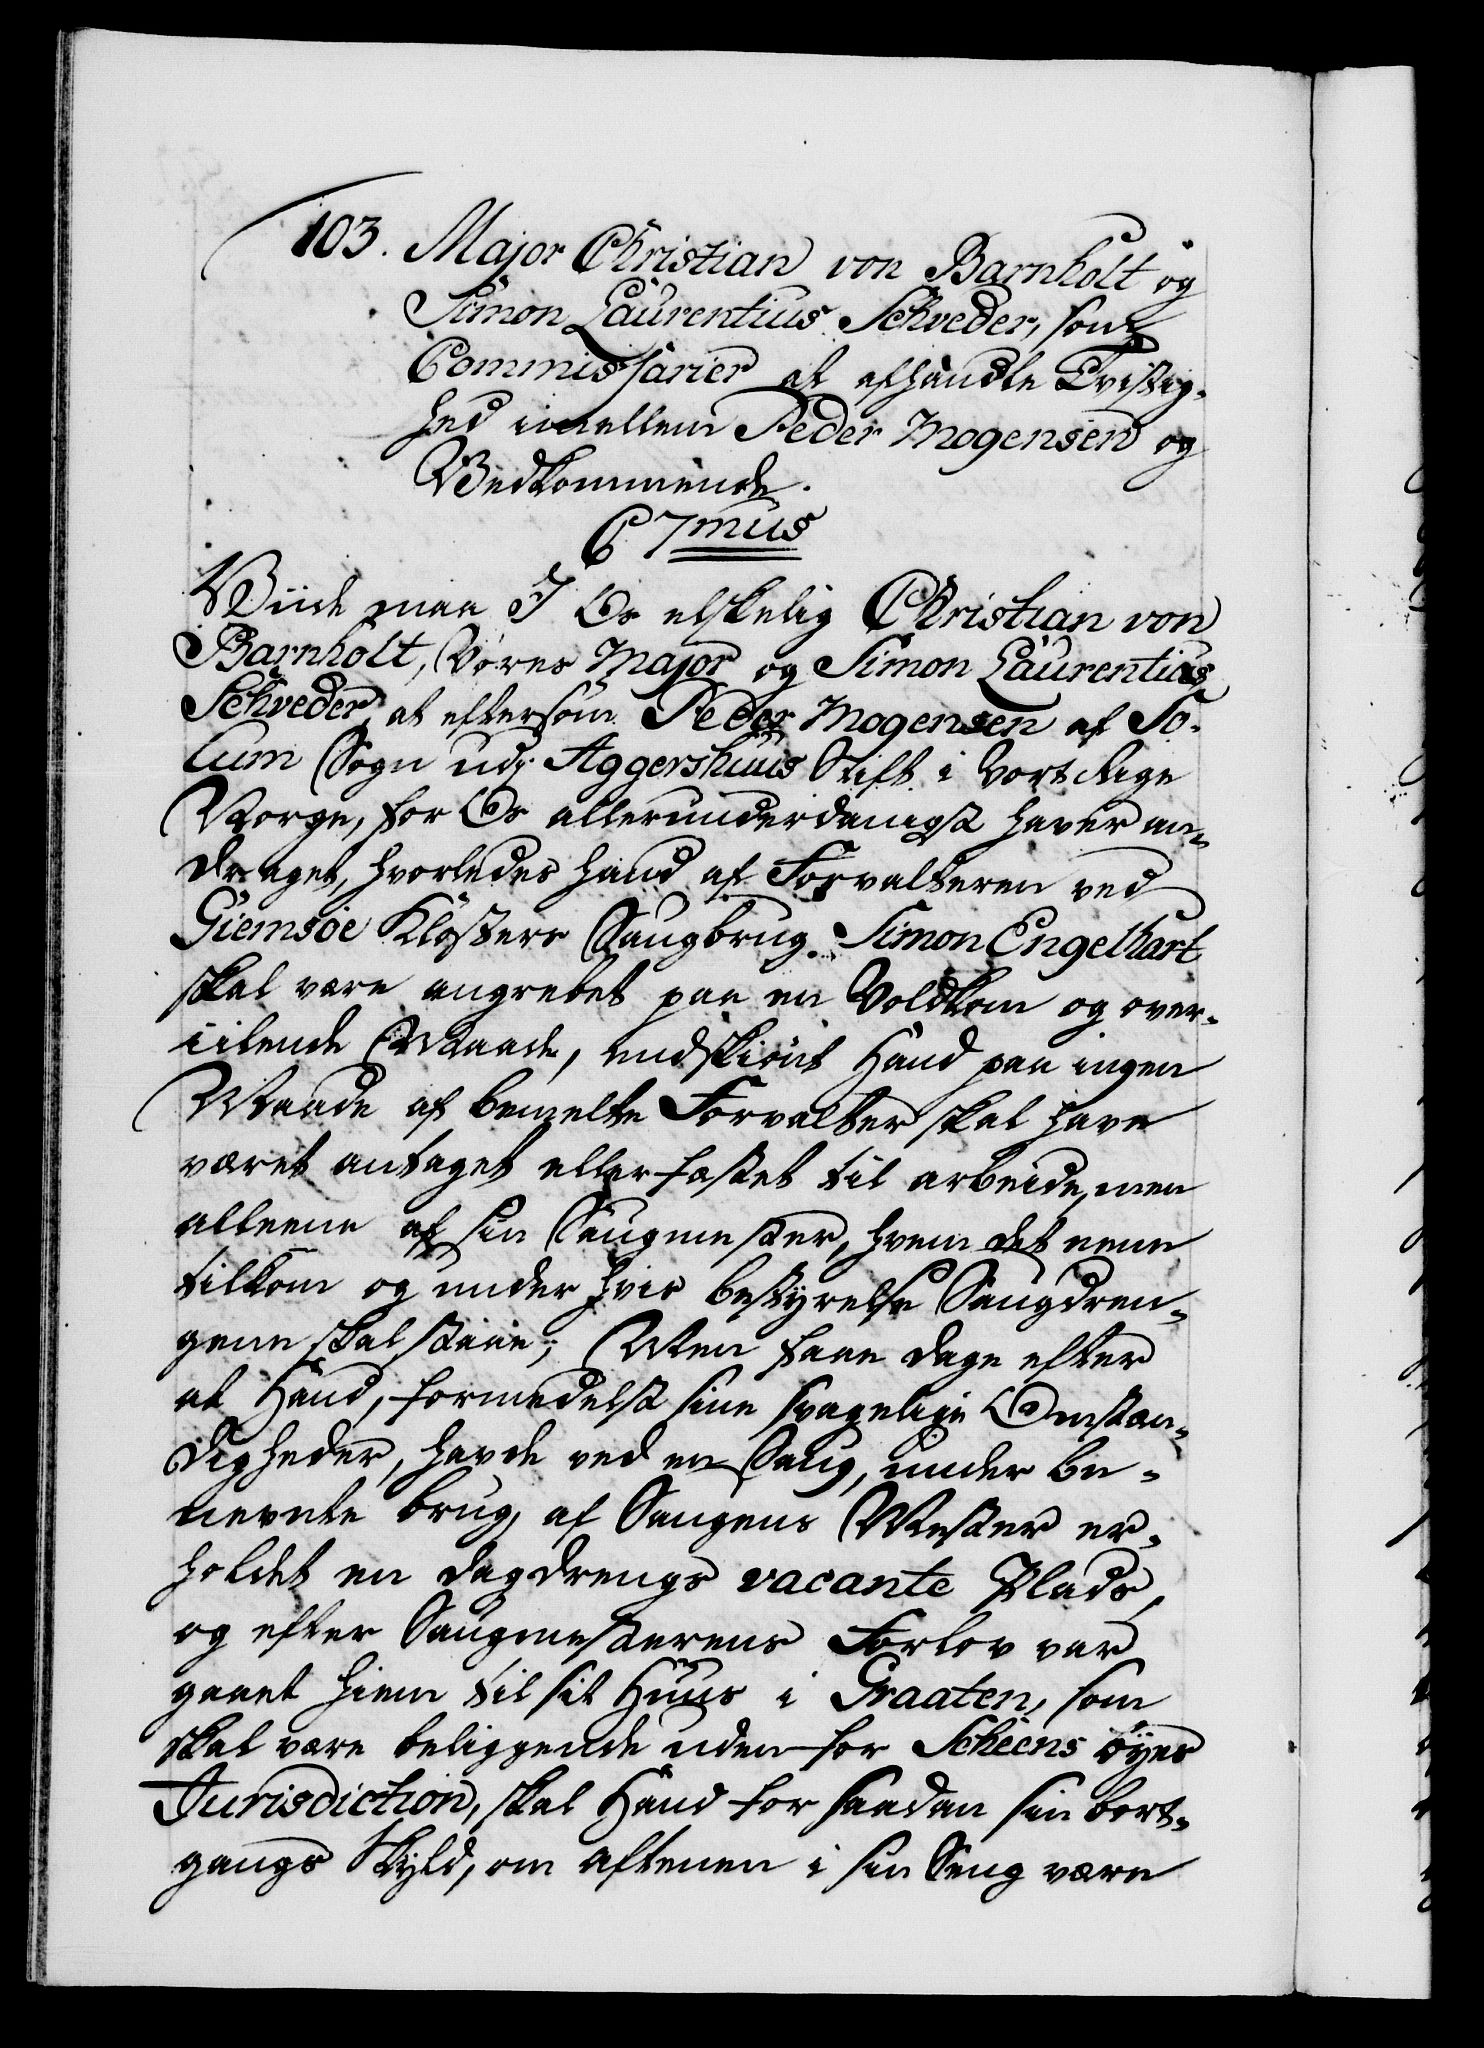 103. Major Christian von Barnholt og
Simon Laurentius Schveder, som
Commissarier at afhandle Tvistig-
hed imellem Peder Mogensen og
Vedkommende.
C 7mus
Viide maa I Os elskelig Christian von
Barnholt, Vores Major og Simon Laurentius
Schveder, at eftersom Peder Mogensen af So-
lum Sogn udj Aggershuus Stift i Vort Rige
Norge, for Os allerunderdanigst haver an-
draget, hvorledes hand af Forvalteren ved
Giemsøe Klosters Saugbrug. Simon Engelhart
skal være angrebet paa en Voldsom og over-
iilende Maade, endskiønt Hand paa ingen
Maade af bemelte Forvalter skal have
været antaget eller fæstet til arbeide, men
alleene af sin Saugmester, hvem det eene
tilkom og under hvis bestyrelse Saugdren-
gene skal staae; Men faae dage efter
at Hand, formedelst sine svagelige Omstæn-
digheder, havde ved en Saug, under be-
nevnte brug, af Saugens Mester er-
holdet en dagdrengs vacante Plads,
og efter Saugmesterens Forlov var
gaaet hiem til sit Huus i Graaten, som
skal være beliggende uden for Scheens byes
Jurisdiction, skal Hand for saadan sin bort-
gangs Skyld, om aftenen i sin Seng være